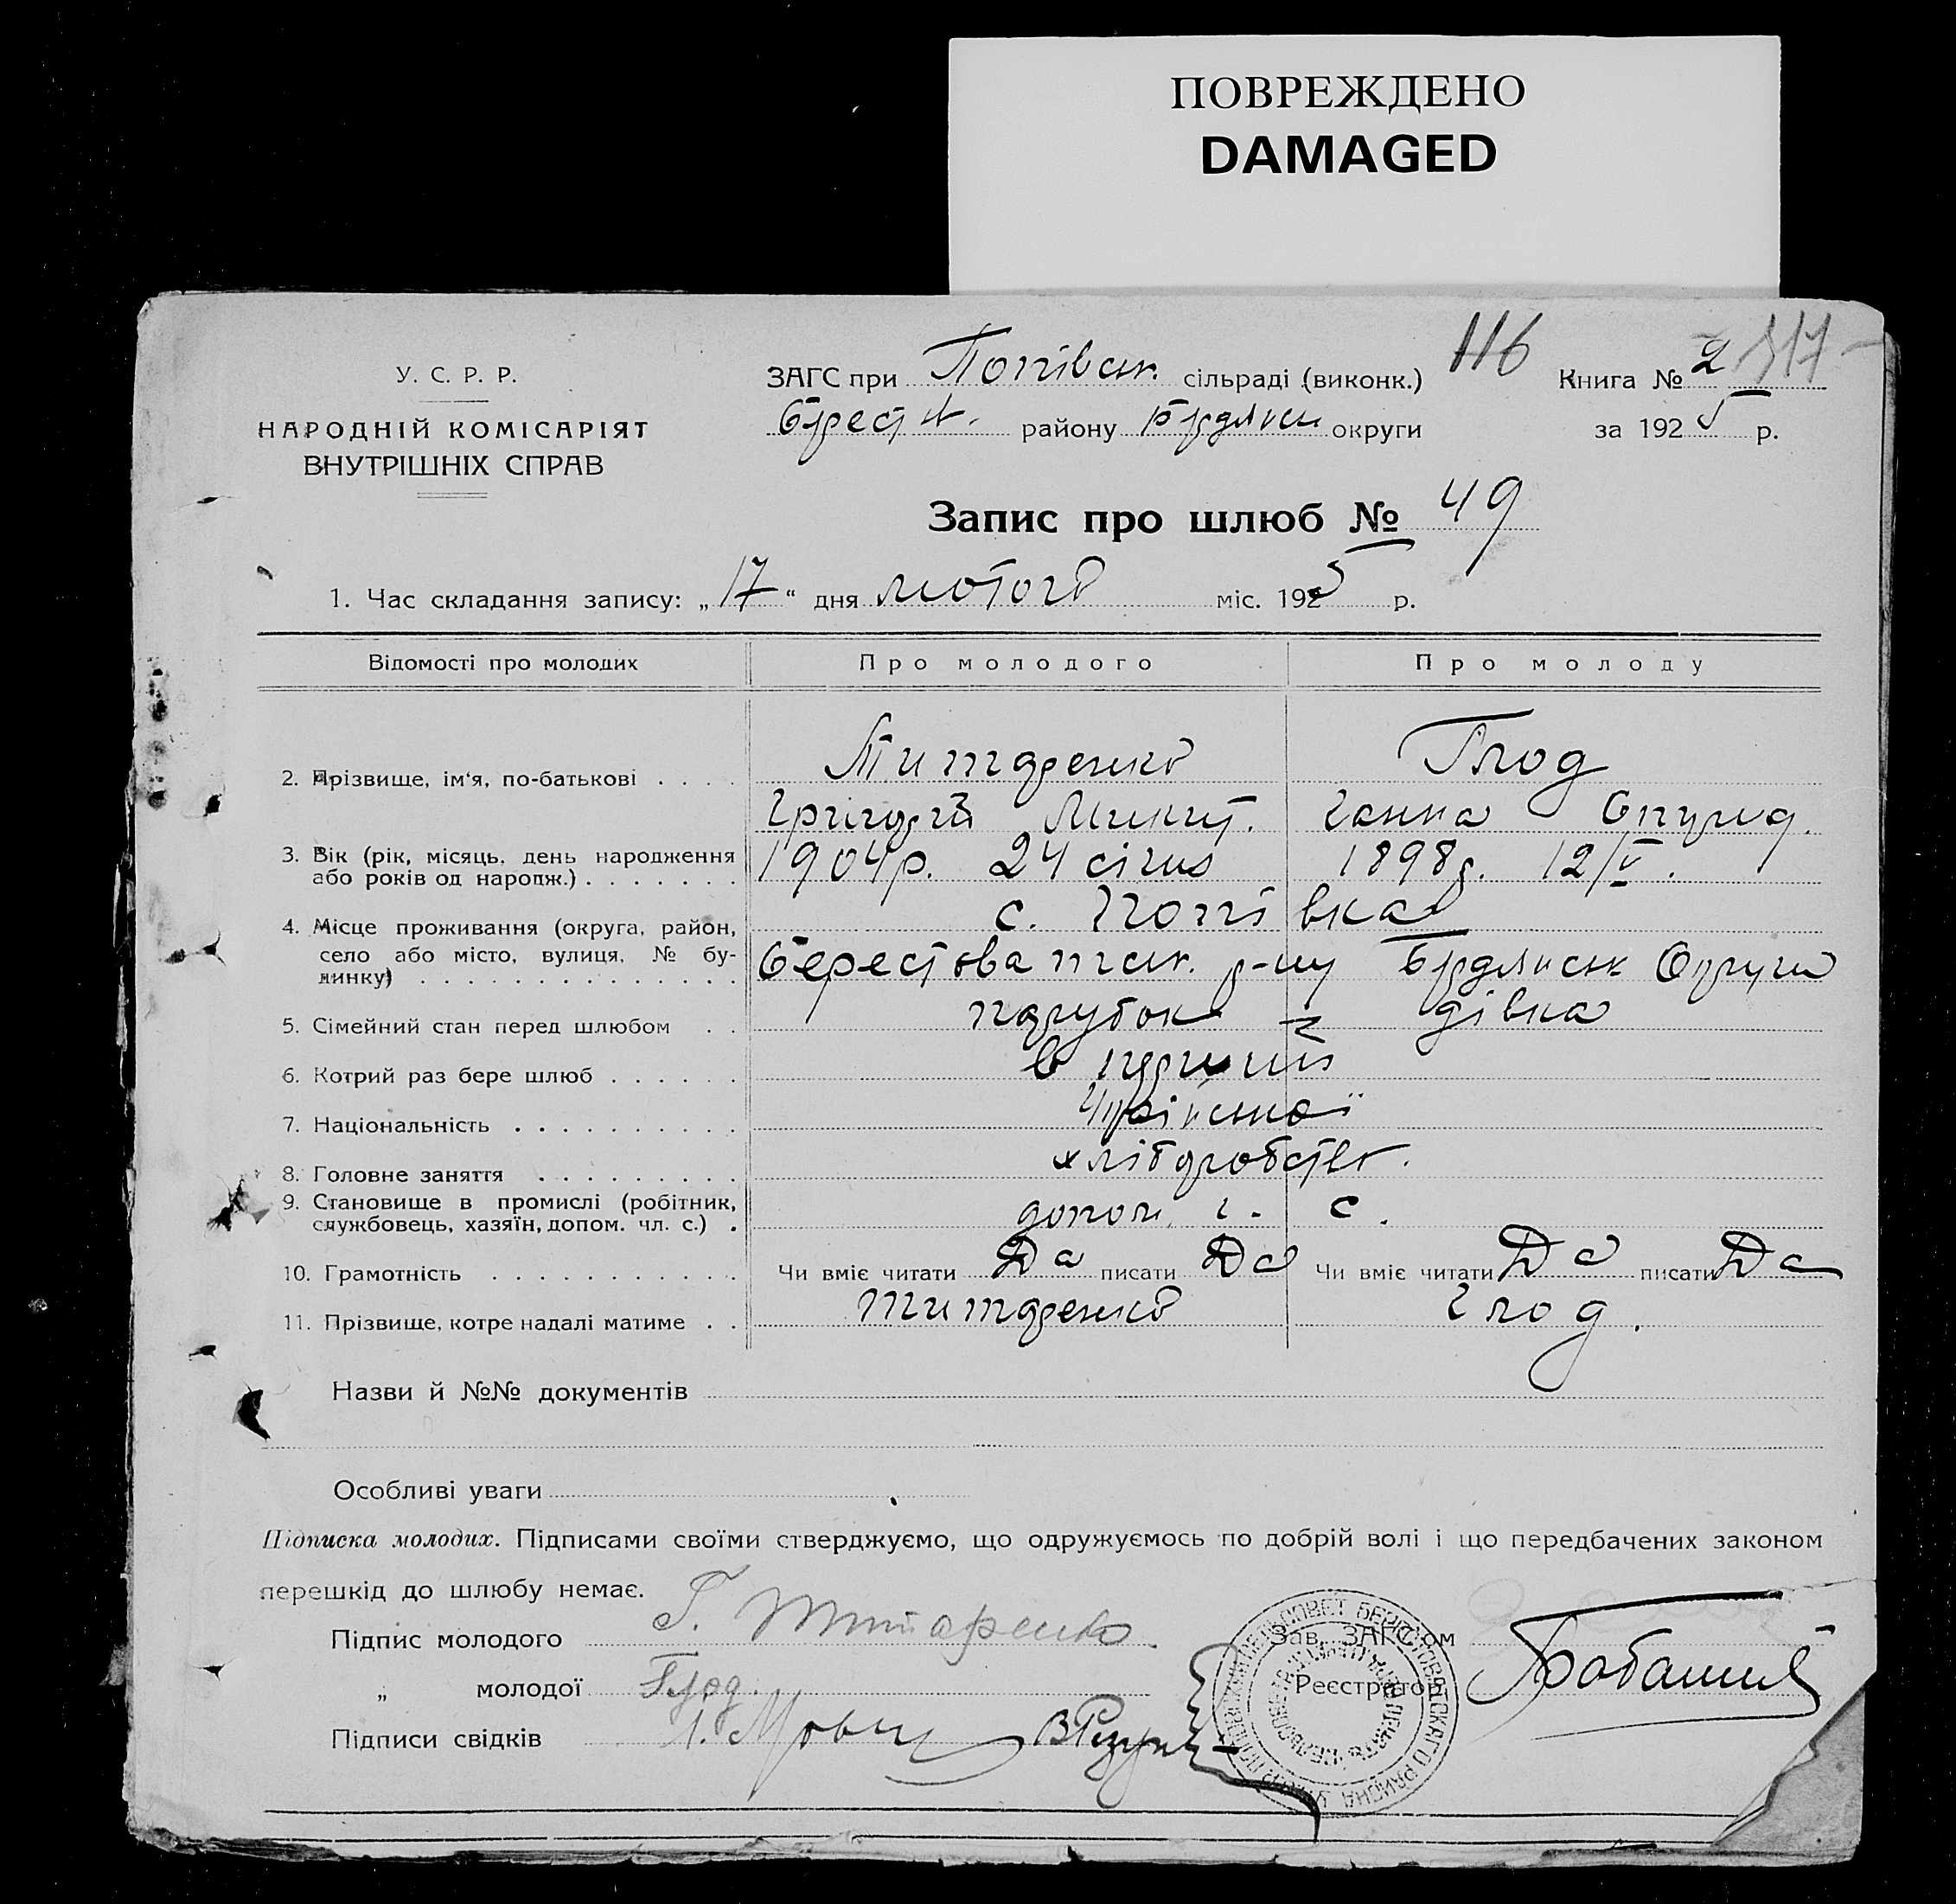 ПОВРЕЖДЕНО
DAMAGED
116
317
У. С. Р. Р.
НАРОДНІЙ КОМІСАРІЯТ
ВНУТРІШНІХ СПРАВ
ЗАГС при Попівськ. сільраді (виконк.) Книга № 2
Берест. району Бердянськ округи за 1925 р.
Запис про шлюб № 49
1. Час складання запису: „17“ дня лютого міс. 1925 р.
Відомості про молодих Про молодого Про молоду
2. Прізвище, ім‘я, по-батькові . . . . Титаренко Глод
Григорій Микит. Ганна
3. Вік (рік, місяць, день народження 1904р. 24 січня 1898р. 12/V.
або років од народж.) . . . . . . .
с. Попівка
4. Місце проживання (округа, район,
село або місто, вулиця, № бу- Берестоватськ. р-ну Бердянськ Округи
динку) . . . . . . . . . . . . . .
5. Сімейний стан перед шлюбом . . парубок – дівка
6. Котрий раз бере шлюб . . . . . . в перший
7. Національність . . . . . . . . . . Української
8. Головне заняття . . . . . . . . . хліборобств.
9. Становище в промислі (робітник,
службовець, хазяїн, допом. чл. с.) . допом. ч. с.
10. Грамотність . . . . . . . . . . . Чи вміє читати Да писати Да Чи вміє читати Да писати Да
11. Прізвище, котре надалі матиме . . Титаренко Глод.
Назви й №№ документів
Особливі уваги
Підписка молодих. Підписами своїми стверджуємо, що одружуємось по добрій волі і що передбачених законом
перешкід до шлюбу немає.
Підпис молодого Г. Титаренко Зав. ЗАГС‘ом
„ молодої Глод. Реєстратор
Підписи свідків